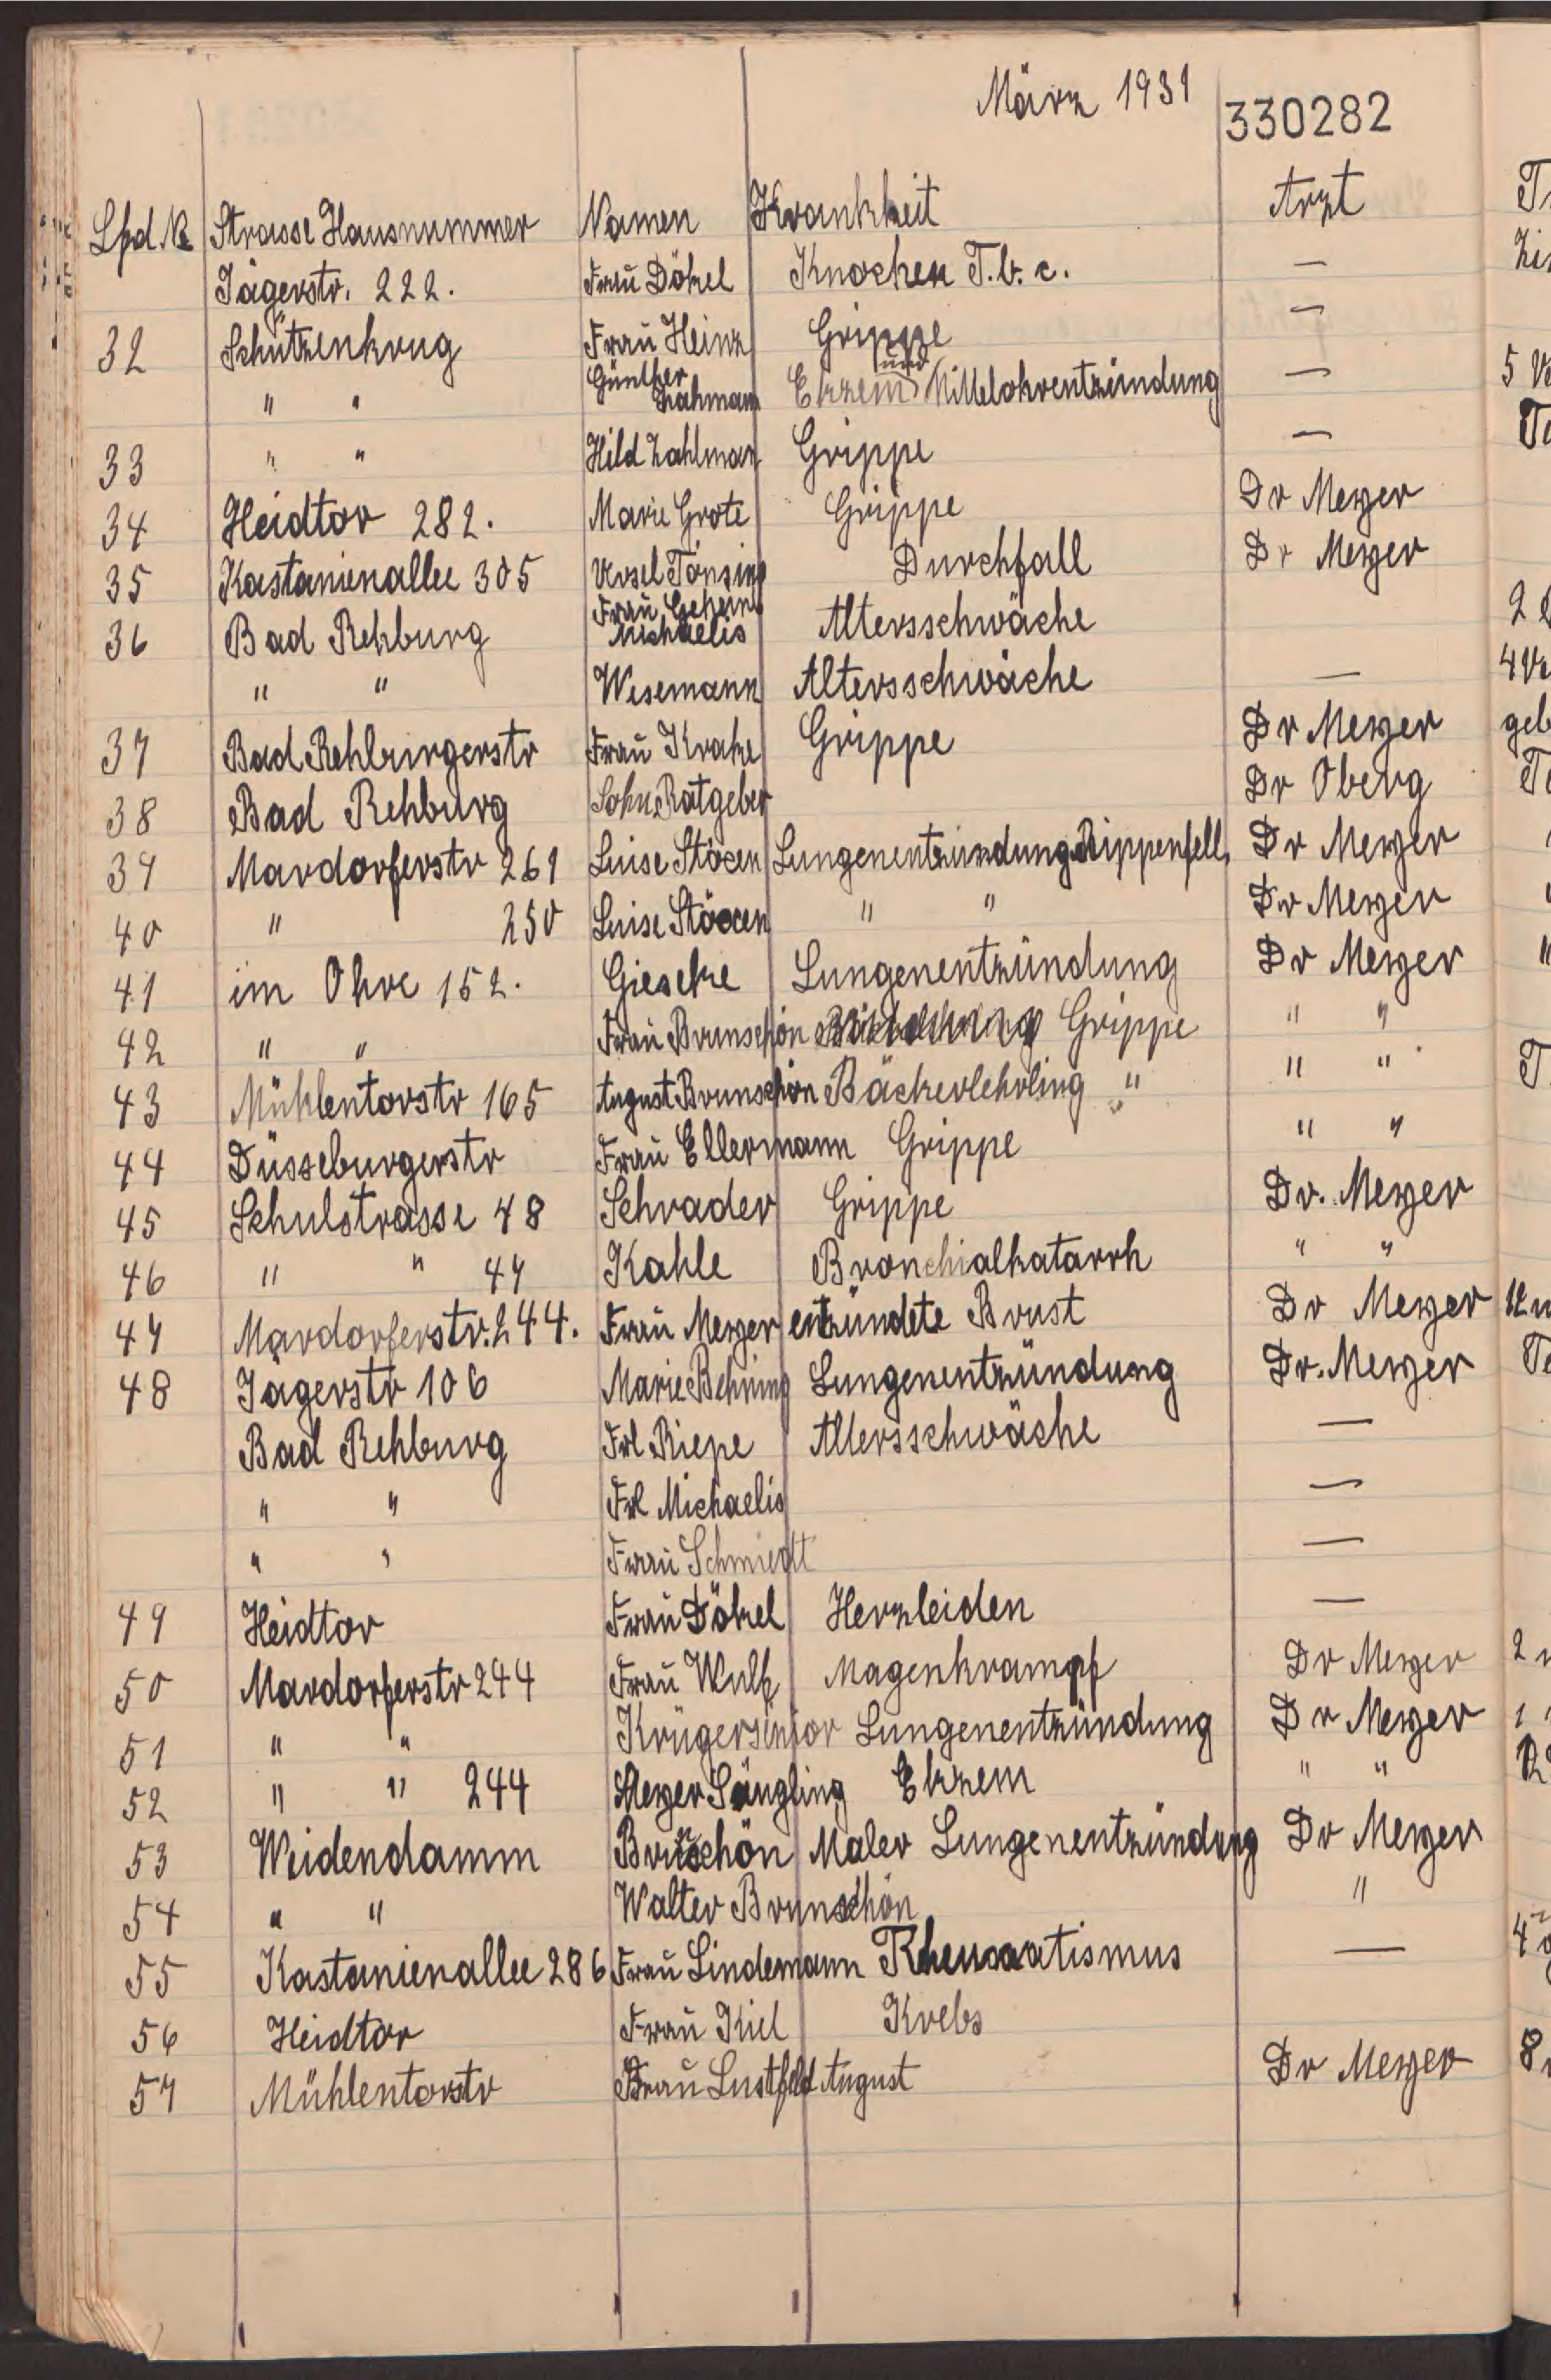 März 1931
330282
Lfd. № Strasse Hausnummer Namen Krankheit Arzt
Jägerstr. 222. Frau Dökel Knochen T.b.c. —
32 Schützenkrug Frau Heinz Grippe —
" " Günther Zahmann Ekzem und Mittelohrentzündung —
33 " " Hild Zahlman Grippe —
34 Heidtor 282. Marie Grote Grippe Dr Meyer
35 Kastanienallee 305 Ursel Tönsing Durchfall Dr Meyer
36 Bad Rehburg Frau Geheim Michaelis Altersschwäche
" " Wesemann Altersschwäche —
37 Bad Rehburgerstr Frau Krake Grippe Dr Meyer
38 Bad Rehburg Sohn Ratgeber Dr Oberg
39 Mardorferstr 261 Luise Stöxen Lungenentzündung Rippenfell Dr Meyer
40 " 250 Luise Stöxen " " Dr Meyer
41 im Ohre 152. Gieseke Lungenentzündung Dr Meyer
42 " " Frau Brunschön Grippe " "
43 Mühlentorstr 165 August Brunschön Bäckerlehrling " " "
44 Düsseburgerstr Frau Ellermann Grippe " "
45 Schulstrasse 48 Schrader Grippe Dr. Meyer
46 " " 47 Kahle Bronchialkatarrh " "
47 Mardorferstr. 244. Frau Meyer entzündete Brust Dr Meyer
48 Jägerstr 106 Marie Behning Lungenentzündung Dr. Meyer
Bad Rehburg Frl Riepe Altersschwäche —
" " Frl Michaelis —
" " Frau Schmiedt —
49 Heidtor Frau Dökel Herzleiden —
50 Mardorferstr 244 Frau Wulf Magenkrampf Dr Meyer
51 " " Krüger senior Lungenentzündung Dr Meyer
52 " " 244 Meyer Säugling Ekzem " "
53 Weidendamm Brunschön Maler Lungenentzündung Dr Meyer
54 " " Walter Brunschön "
55 Kastanienallee 286 Frau Lindemann Rheumatismus —
56 Heidtor Frau Kiel Krebs
57 Mühlentorstr Frau Lustfeld August Dr Meyer